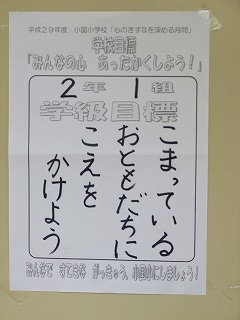 平成29年度 小国小学校「心のきずなを深める月間」
学校目標
「みんなの心 あったかくしよう！」
2年1組
学級目標
こまっている
おともだちに
こえを
かけよう
みんなで すてきな がっきゅう、小国小にしましょう！